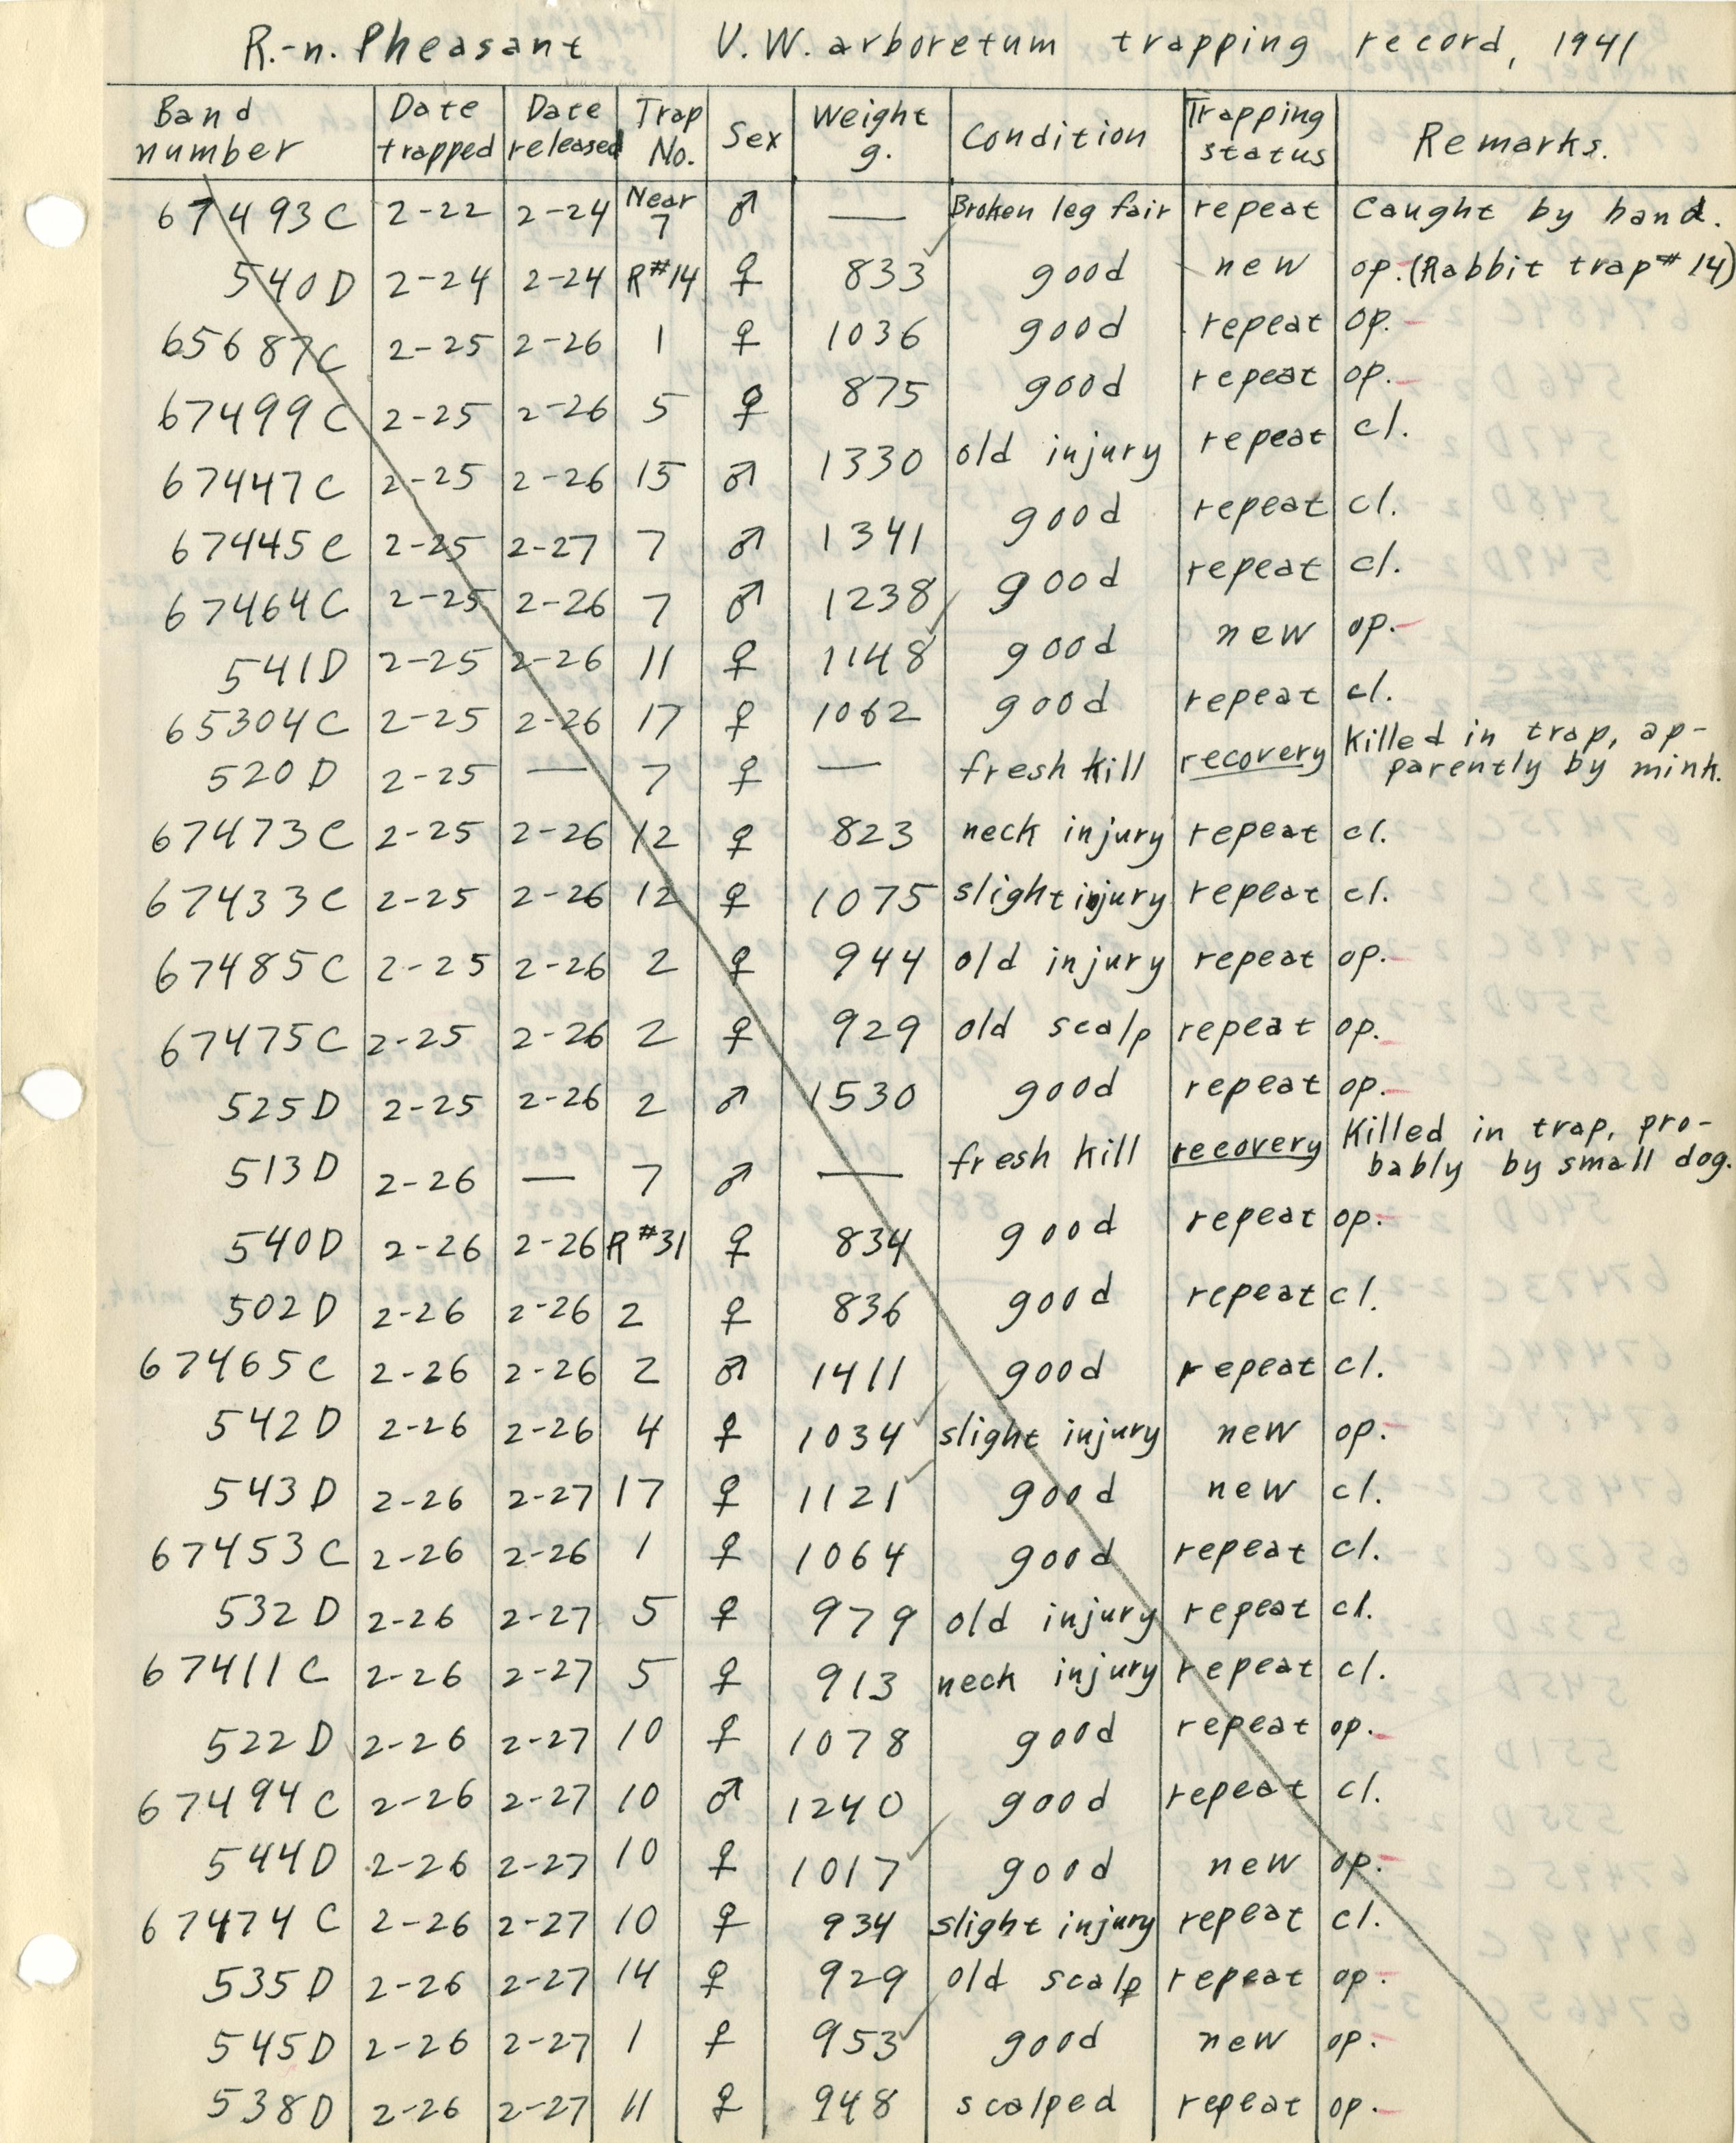 R.-n. Pheasant U.W. arboretum trapping record, 1941
Band number Date trapped Date released Trap No. Sex Weight g. Condition Trapping status Remarks.
67493C 2-22 2-24 Near 7 ♂ — Broken leg fair repeat Caught by hand.
540D 2-24 2-24 R#14 ♀ 833 ✓ good new op. (Rabbit trap #14)
65687C 2-25 2-26 1 ♀ 1036 good repeat op.
67499C 2-25 2-26 5 ♀ 875 good repeat op.
67447C 2-25 2-26 15 ♂ 1330 old injury repeat cl.
67445C 2-25 2-27 7 ♂ 1341 good repeat cl.
67464C 2-25 2-26 7 ♂ 1238 good repeat cl.
541D 2-25 2-26 11 ♀ 1148 ✓ good new op.
65304C 2-25 2-26 17 ♀ 1062 good repeat cl.
520D 2-25 — 7 ♀ — fresh kill recovery Killed in trap, ap-
parently by mink.
67473C 2-25 2-26 12 ♀ 823 neck injury repeat cl.
67433C 2-25 2-26 12 ♀ 1075 slight injury repeat cl.
67485C 2-25 2-26 2 ♀ 944 old injury repeat op.
67475C 2-25 2-26 2 ♀ 929 old scalp repeat op.
525D 2-25 2-26 2 ♂ 1530 good repeat op.
513D 2-26 — 7 ♂ — fresh kill recovery Killed in trap, pro-
bably by small dog.
540D 2-26 2-26 R#31 ♀ 834 good repeat op.
502D 2-26 2-26 2 ♀ 836 good repeat cl.
67465C 2-26 2-26 2 ♂ 1411 good repeat cl.
542D 2-26 2-26 4 ♀ 1034 ✓ slight injury new op.
543D 2-26 2-27 17 ♀ 1121 ✓ good new cl.
67453C 2-26 2-26 1 ♀ 1064 good repeat cl.
532D 2-26 2-27 5 ♀ 979 old injury repeat cl.
67411C 2-26 2-27 5 ♀ 913 neck injury repeat cl.
522D 2-26 2-27 10 ♀ 1078 good repeat op.
67494C 2-26 2-27 10 ♂ 1240 good repeat cl.
544D 2-26 2-27 10 ♀ 1017 ✓ good new op.
67474C 2-26 2-27 10 ♀ 934 slight injury repeat cl.
535D 2-26 2-27 14 ♀ 929 old scalp repeat op.
545D 2-26 2-27 1 ♀ 953 ✓ good new op.
538D 2-26 2-27 11 ♀ 948 scalped repeat op.